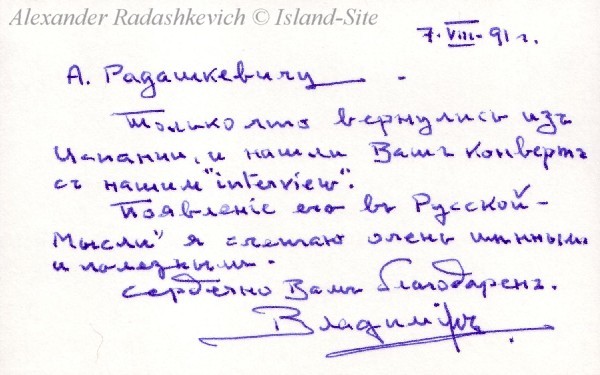 Alexander Radashkevich © Island-Site
7.VIII.91 г.
А. Радашкевичу
Только что вернулись изъ
Испании, и нашли Вашъ конвертъ
съ нашим "interview".
Появленіе его въ "Русской
Мысли" я считаю очень
и полезным.
Сердечно Вамъ благодаренъ.
Владиміръ